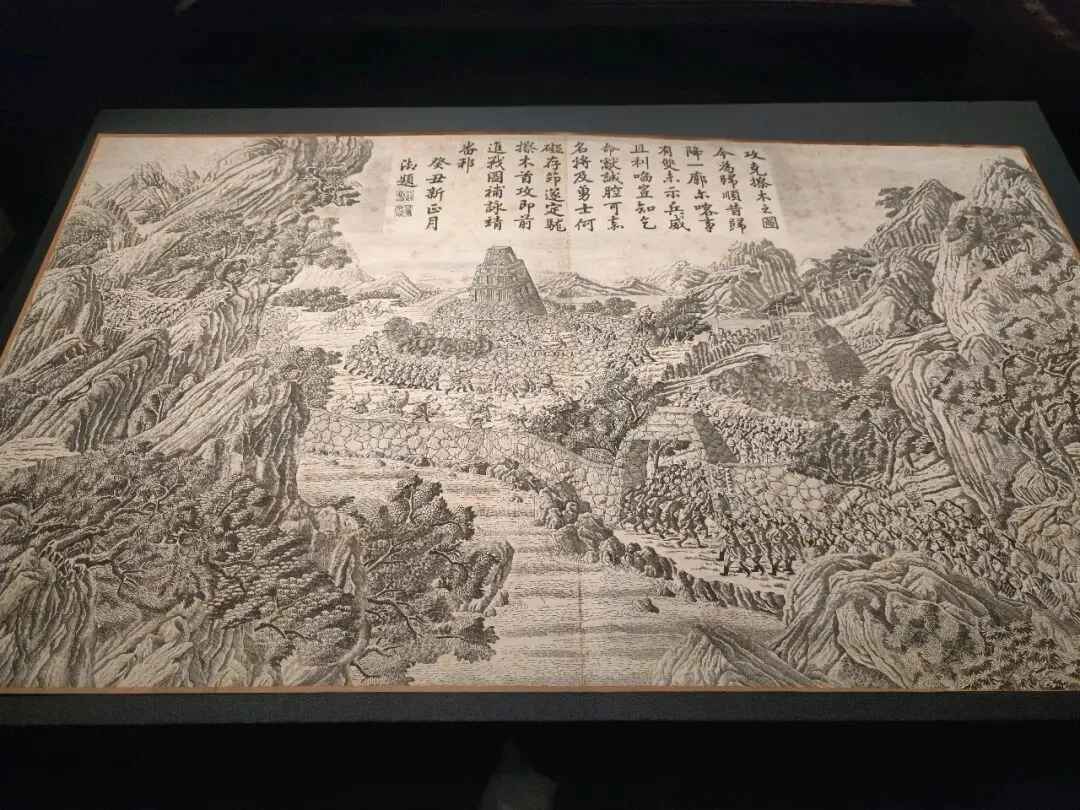 攻克擦木之圖
今為歸順昔歸
降一廓尔喀事
有雙未示兵威
且利啗豈知乞
命獻誠腔可嘉
名將及勇士何
礙存節遂定駹
擦木首攻即前
進戰圖補詠靖
番邦
癸丑新正月
御題